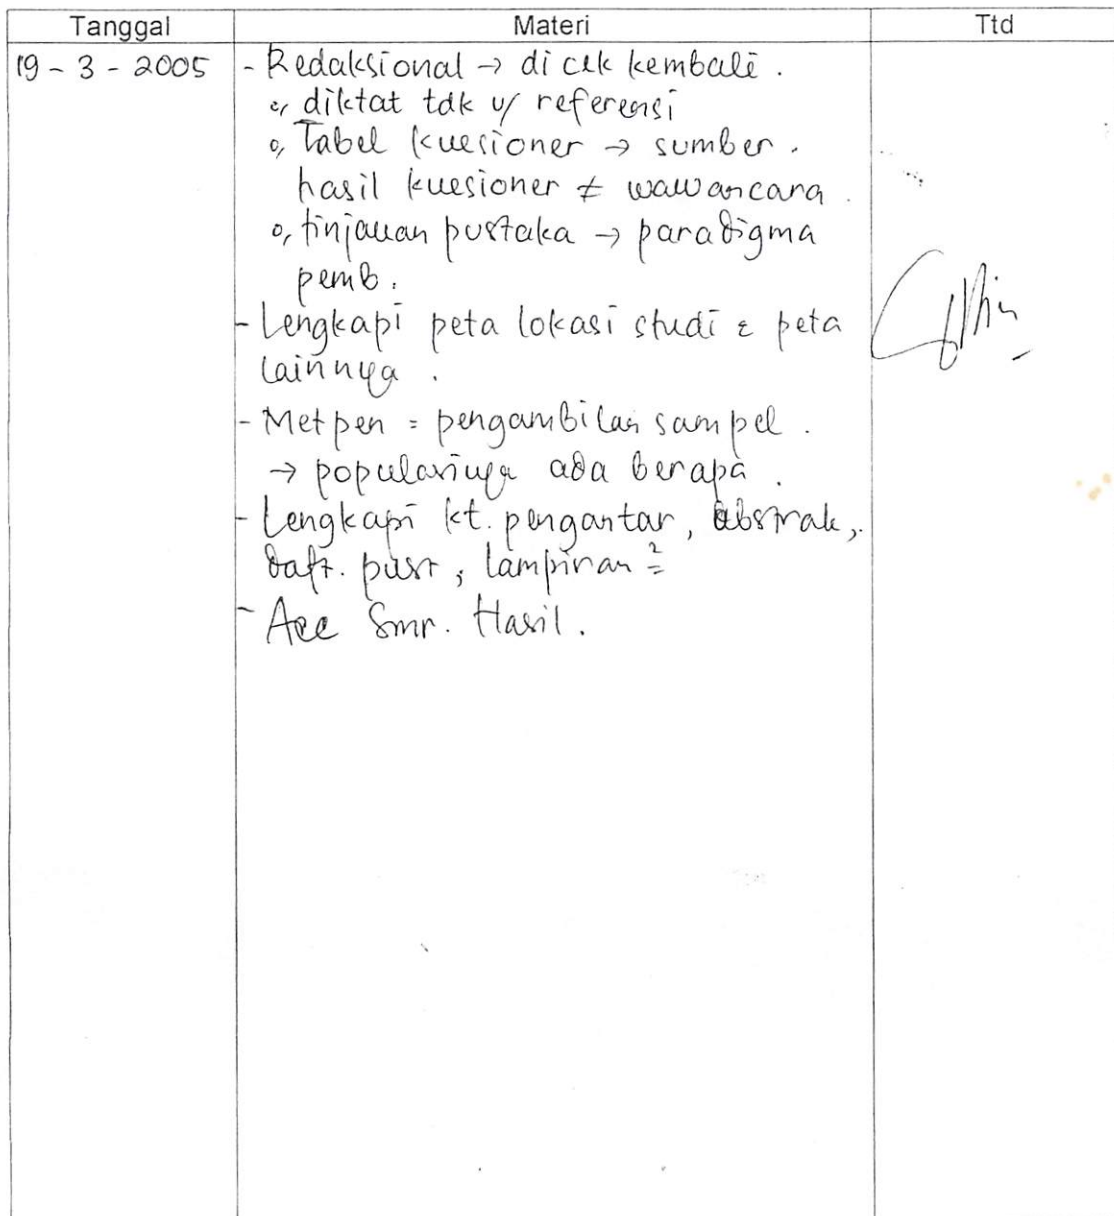 Tanggal Materi Ttd
19 - 3 - 2005 - Redaksional → di cek kembali.
o, diktat tdk u/ referensi
o, Tabel kuesioner → sumber.
hasil kuesioner ≠ wawancara.
o, tinjauan pustaka → paradigma
pemb.
- Lengkapi peta lokasi studi & peta
lainnya.
- Metpen = pengambilan sampel.
→ populasinya ada berapa.
- Lengkapi kt. pengantar, abstrak,
daft. pust, lampiran²
- Acc Smr. Hasil.